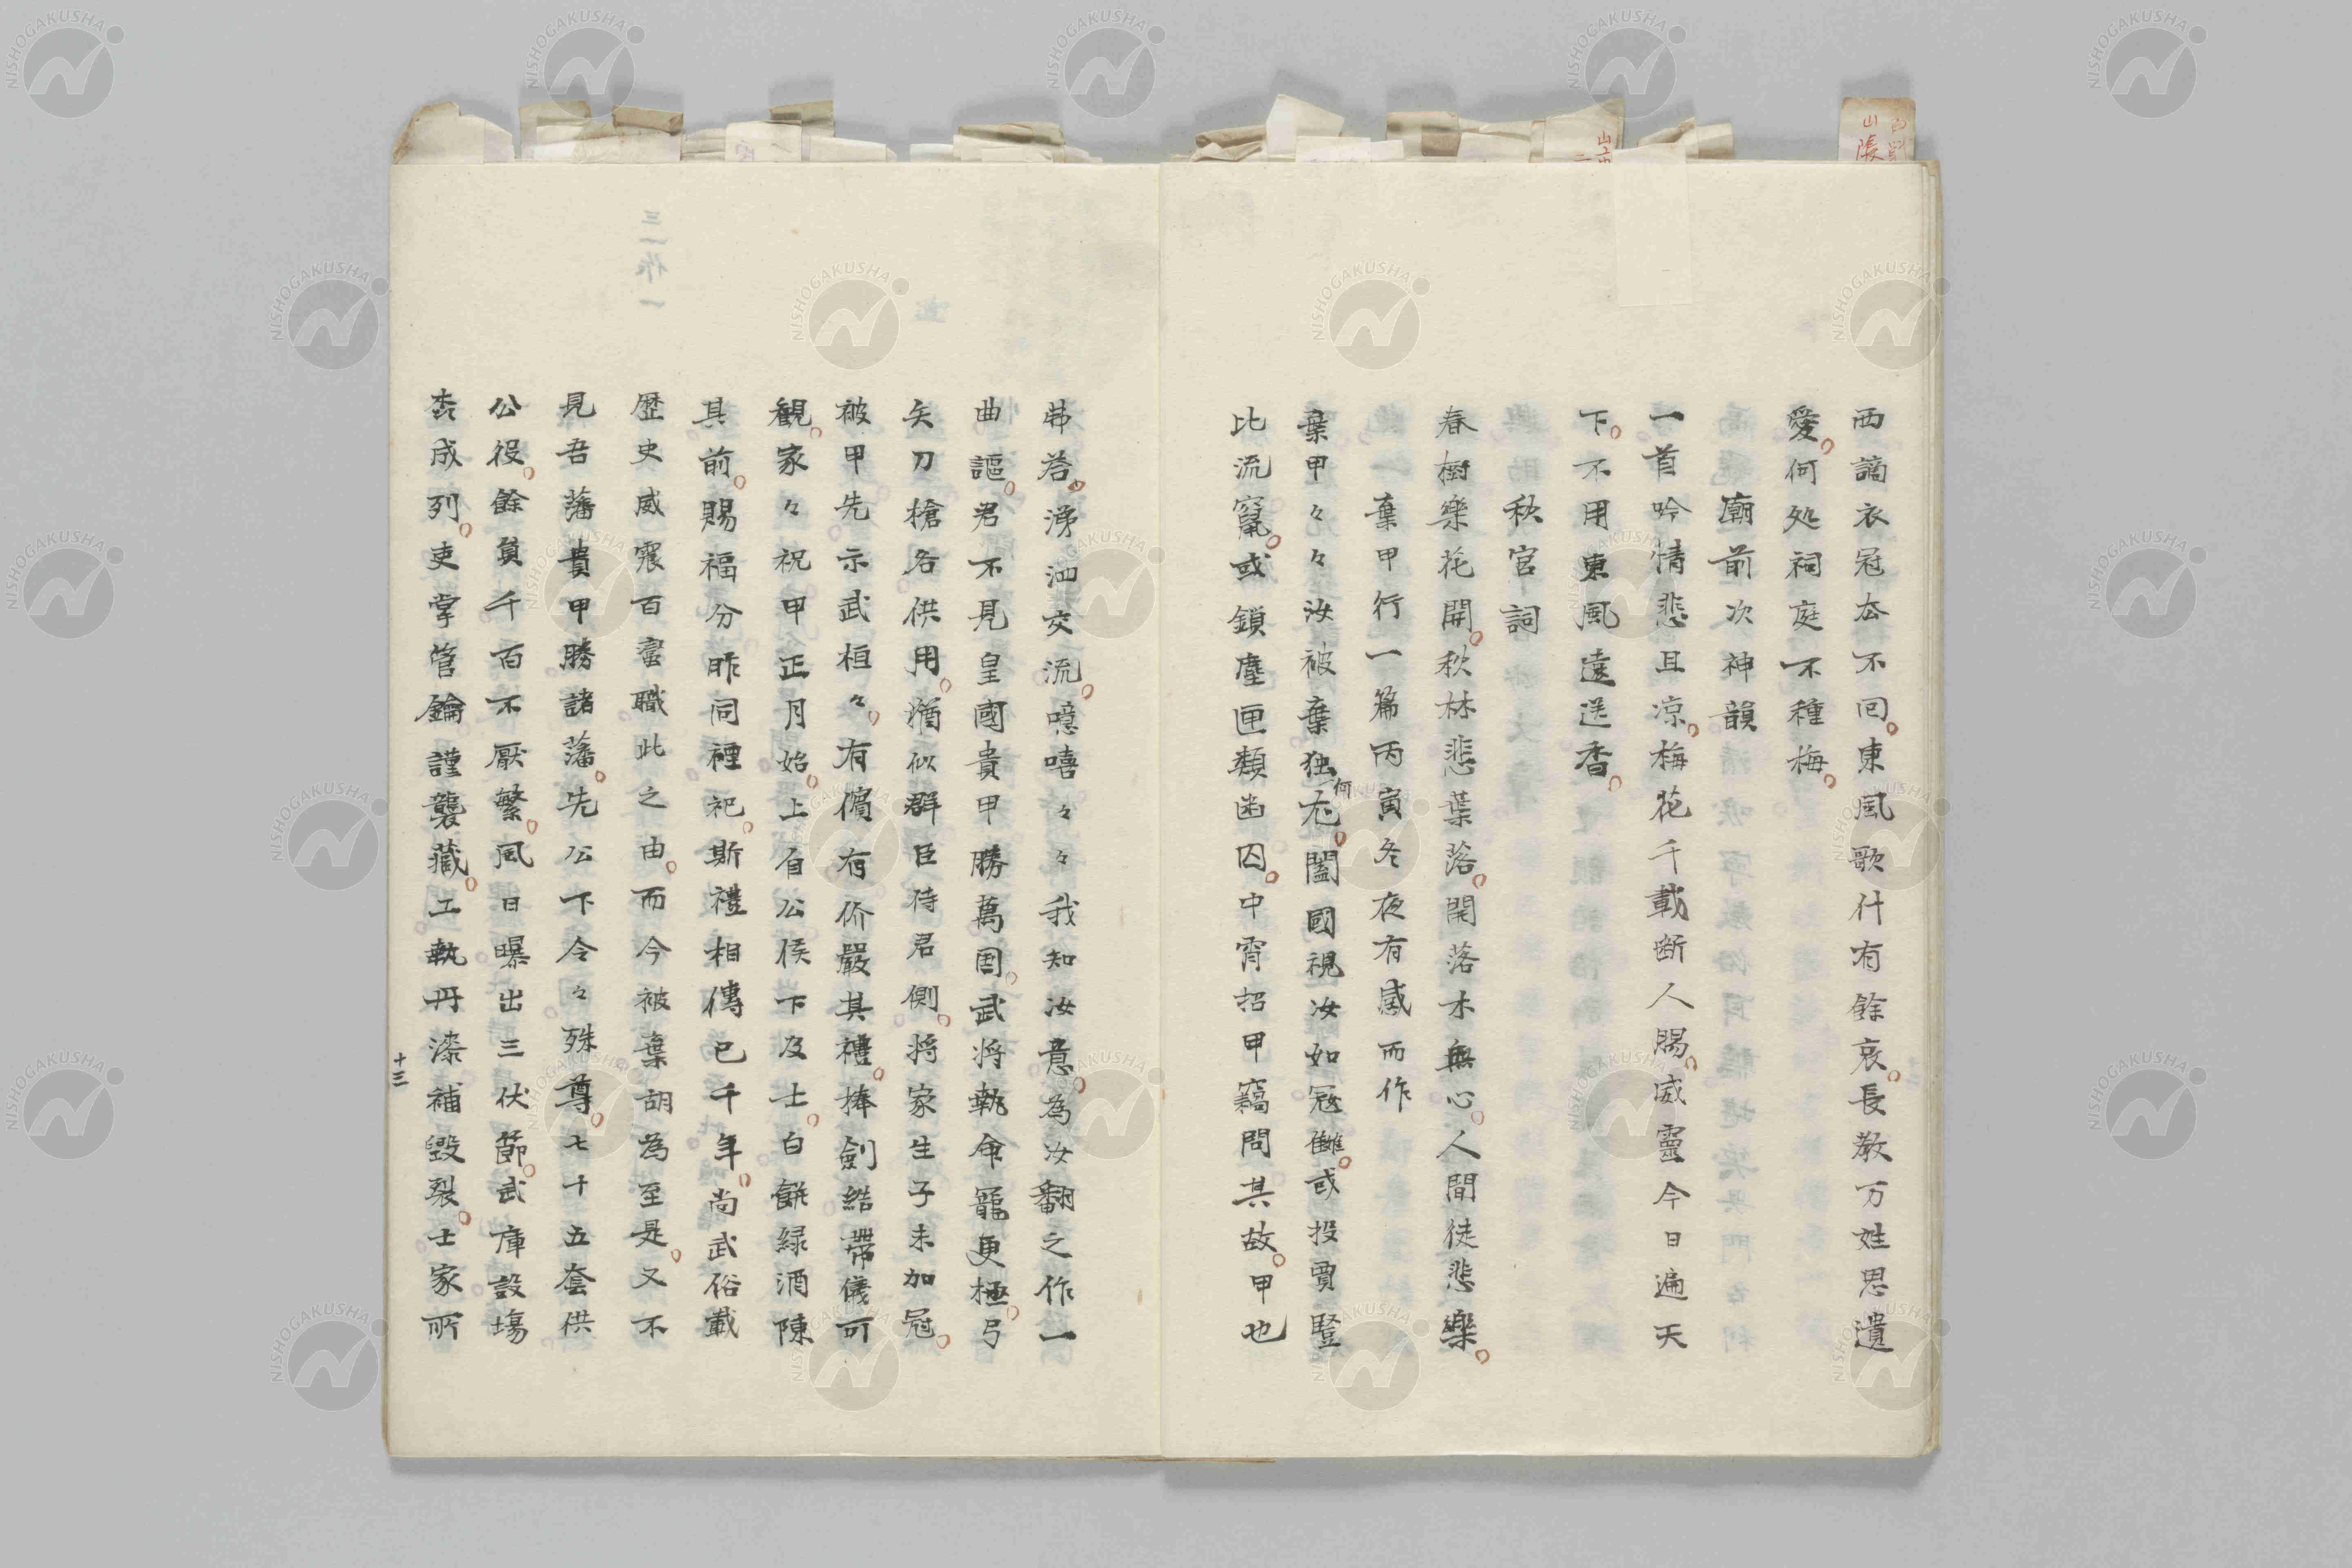 西謫衣冠太不回。東風歌什有餘哀。長教万姓思遺
愛。何処祠庭不種梅。
廟前次神韻
一首吟情悲且凉。梅花千載断人腸。威靈今日遍天
下。不用東風遠送香。
秋宮詞
春樹樂花開。秋林悲葉落。開落木無心。人間徒悲樂。
棄甲行一篇丙寅冬夜有感而作
棄甲々々汝被棄独何尤。闔國視汝如冦讎。或投賈豎
比流竄。或鎖塵匣類幽囚。中宵招甲竊問其故。甲也
弗荅。涕泗交流。噫嘻々々我知汝意。為汝翻之作一
曲謳。君不見皇國貴甲勝萬国。武将執命寵更極。弓
矢刀槍各供用。猶似群臣侍君側。将家生子未加冠。
被甲先示武桓々。有儐有价嚴其禮。捧劍結帶儀可
觀。家々祝甲正月始。上自公侯下及士。白餅緑酒陳
其前。賜福分胙同禋祀。斯禮相傳已千年。尚武俗載
歴史威震百蛮職此之由。而今被棄胡為至是。又不
見吾藩貴甲勝諸藩。先公下令々殊尊。七十五套供
公役。餘員千百不厭繁。風日曝出三伏節。武庫設場
森成列。吏掌管鑰謹襲藏。工執丹漆補毀裂。士家所
十三
NISHOGAKUSHA